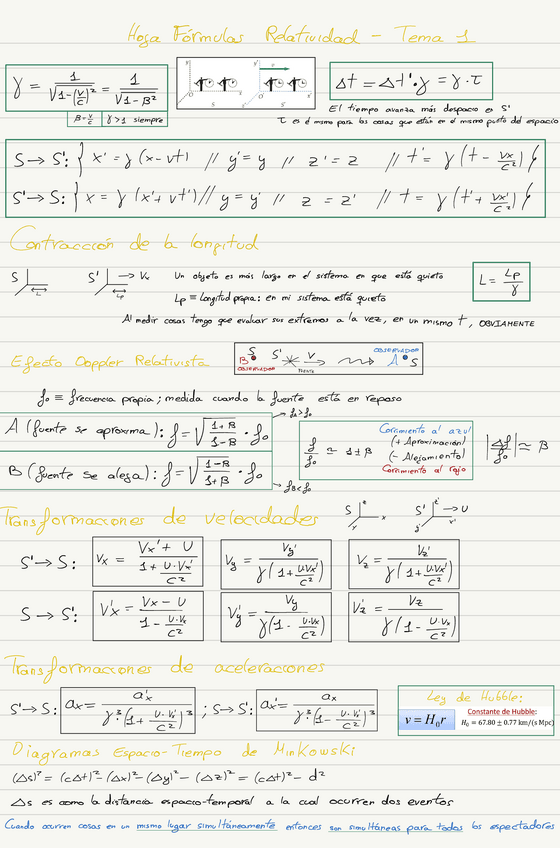 Hoja Fórmulas Relatividad - Tema 1
γ = 1/√(1-(v/c)²) = 1/√(1-β²)
β = v/c γ>1 siempre
Δt = Δt'·γ = γ·τ
El tiempo avanza más despacio es S'
τ es el mismo para las cosas que están en el mismo punto del espacio
S→S': { x' = γ(x-vt) // y' = y // z' = z // t' = γ(t - vx/c²) }
S'→S: { x = γ(x'+vt') // y = y' // z = z' // t = γ(t' + vx'/c²) }
Contracción de la longitud
S L S' Lp → Vx
Un objeto es más largo en el sistema en que está quieto
Lp ≡ Longitud propia: en mi sistema está quieto
L = Lp/γ
Al medir cosas tengo que evaluar sus extremos a la vez, en un mismo t, OBVIAMENTE
Efecto Doppler Relativista
B S OBSERVADOR S' V FUENTE OBSERVADOR A S
f₀ ≡ frecuencia propia; medida cuando la fuente está en reposo
A (fuente se aproxima): f = √((1+β)/(1-β)) · f₀
→ fA>f₀
B (fuente se aleja): f = √((1-β)/(1+β)) · f₀
→ fB<f₀
f/f₀ ≃ 1±β
Corrimiento al azul
(+ Aproximación)
(- Alejamiento)
Corrimiento al rojo
|Δf/f₀| ≃ β
Transformaciones de velocidades
S x y z S' → U x' y' z'
S'→S: Vx = (Vx' + U)/(1 + U·Vx'/c²) Vy = Vy'/(γ(1 + U·Vx'/c²)) Vz = Vz'/(γ(1 + U·Vx'/c²))
S→S': V'x = (Vx - U)/(1 - U·Vx/c²) Vy' = Vy/(γ(1 - U·Vx/c²)) Vz' = Vz/(γ(1 - U·Vx/c²))
Transformaciones de aceleraciones
S'→S: ax = a'x/(γ³·(1 + U·Vx'/c²)³) ; S→S': a'x = ax/(γ³·(1 - U·Vx/c²)³)
Ley de Hubble:
v = H₀r
Constante de Hubble:
H₀ = 67.80 ± 0.77 km/(s Mpc)
Diagramas Espacio-Tiempo de Minkowski
(Δs)² = (cΔt)² - (Δx)² - (Δy)² - (Δz)² = (cΔt)² - d²
Δs es como la distancia espacio-temporal a la cual ocurren dos eventos
Cuando ocurren cosas en un mismo lugar simultáneamente entonces son simultáneas para todos los espectadores